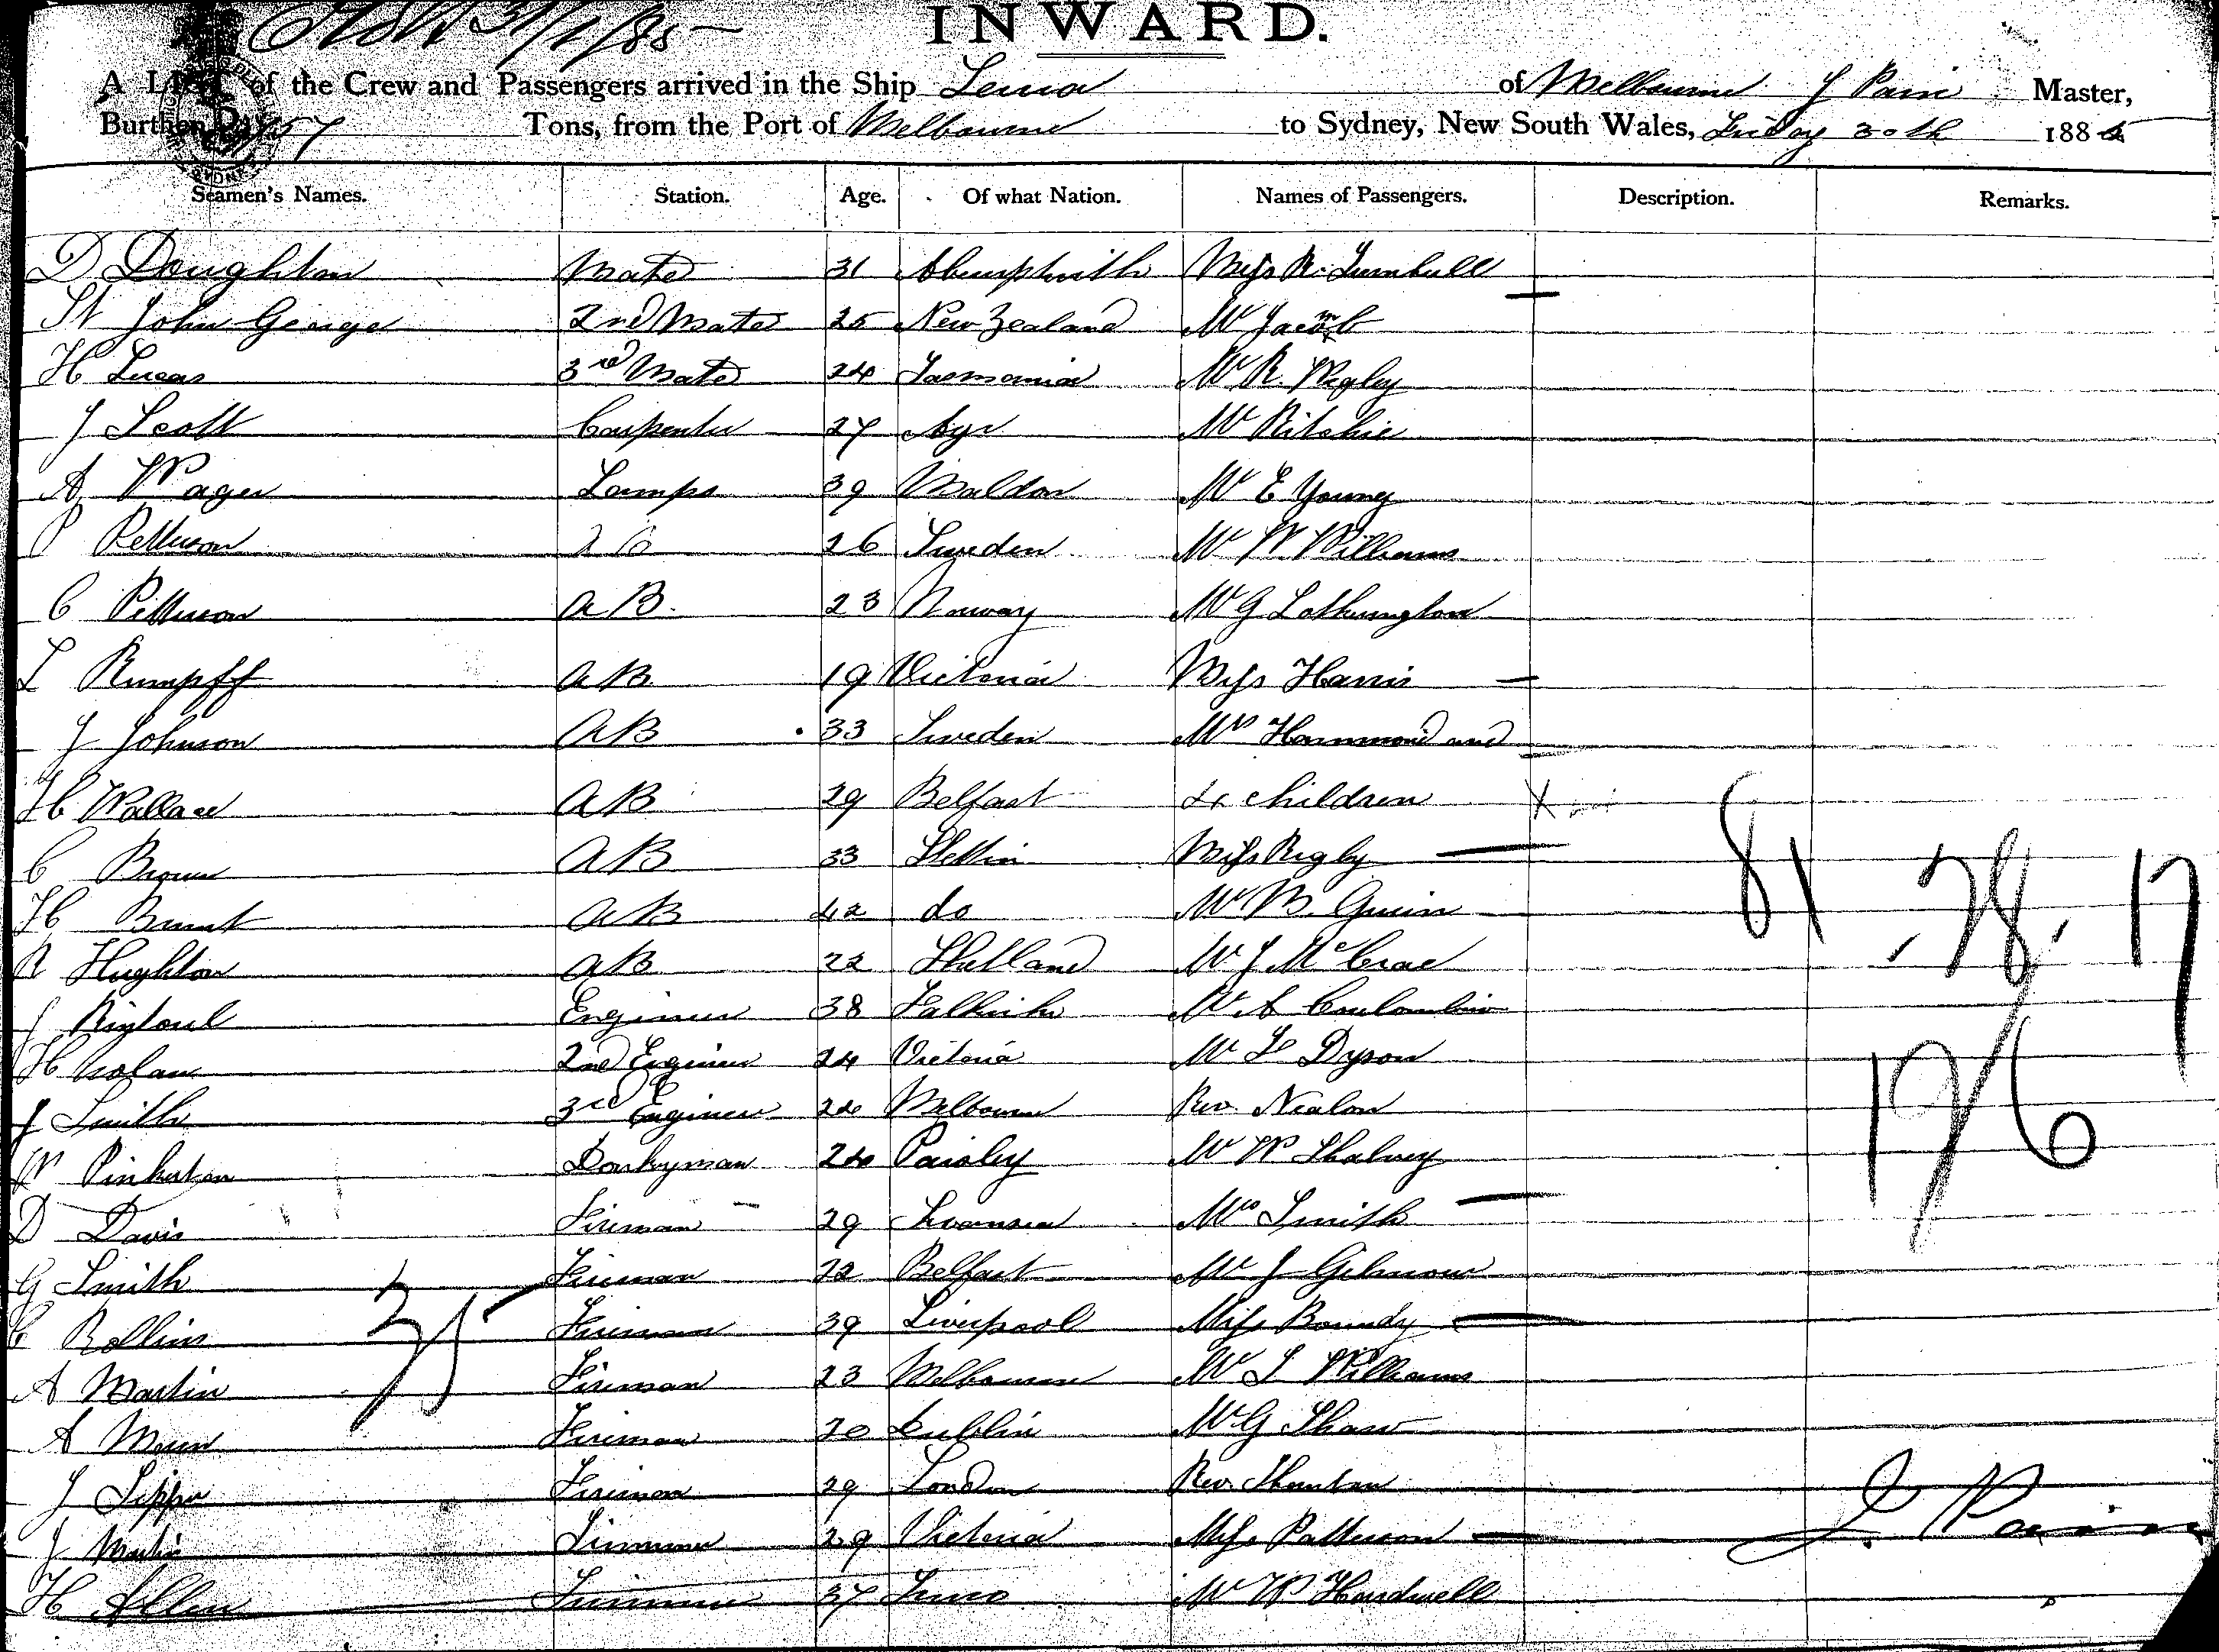 31/1/85
INWARD.
A LIST of the Crew and Passengers arrived in the Ship of Melbourne J Pain Master,
Burthen Tons, from the Port of Melbourne to Sydney, New South Wales, Friday 30th 1885
Seamen's Names. Station. Age. Of what Nation. Names of Passengers. Description. Remarks.
D Doughton Mate 31 Miss R. Turnbull
St John George 2nd Mate 25 New Zealand Mr Jacomb
H Lucas 3rd Mate 24 Tasmania Mr R. Wigley
J Scott Carpenter 27 Ayr Mr Ritchie
A Wager Lamps 39 Maldon Mr E Young
P Petterson AB 26 Sweden Mr W Williams
C Petterson AB. 23 Norway Mr G Lotherington
L Rumpff AB 19 Victoria Miss Harris
J Johnson AB 33 Sweden Mrs Hammond and
H Wallace AB 29 Belfast 4 children X
C Brown AB 33 Stettin Miss Rigby
H Brunt AB 42 do Mr B. Guinn
R Hughton AB 22 Shetland Mr J McCrae
J Rintoul Engineer 38 Falkirk Mr A
H Nolan 2nd Engineer 24 Victoria Mr F Dyson
J Smith 3rd Engineer 24 Melbourne Rev. Nealon
W Pinkerton Donkeyman 24 Paisley Mr W Shalvey
D Davis Fireman 29 Swansea Mrs Smith
G Smith Fireman 22 Belfast Mr J Gilmour
C Rollins Fireman 39 Liverpool Miss Boundy
A Martin Fireman 23 Melbourne Mr J Williams
A Fireman 20 Dublin Mr G Shaw
J Fireman 29 London Rev.
J Martin Trimmer 29 Victoria Miss Patterson
H Allen Trimmer 37 Mr W Hardwell
25
81 . 78 . 17
176
J. Pain